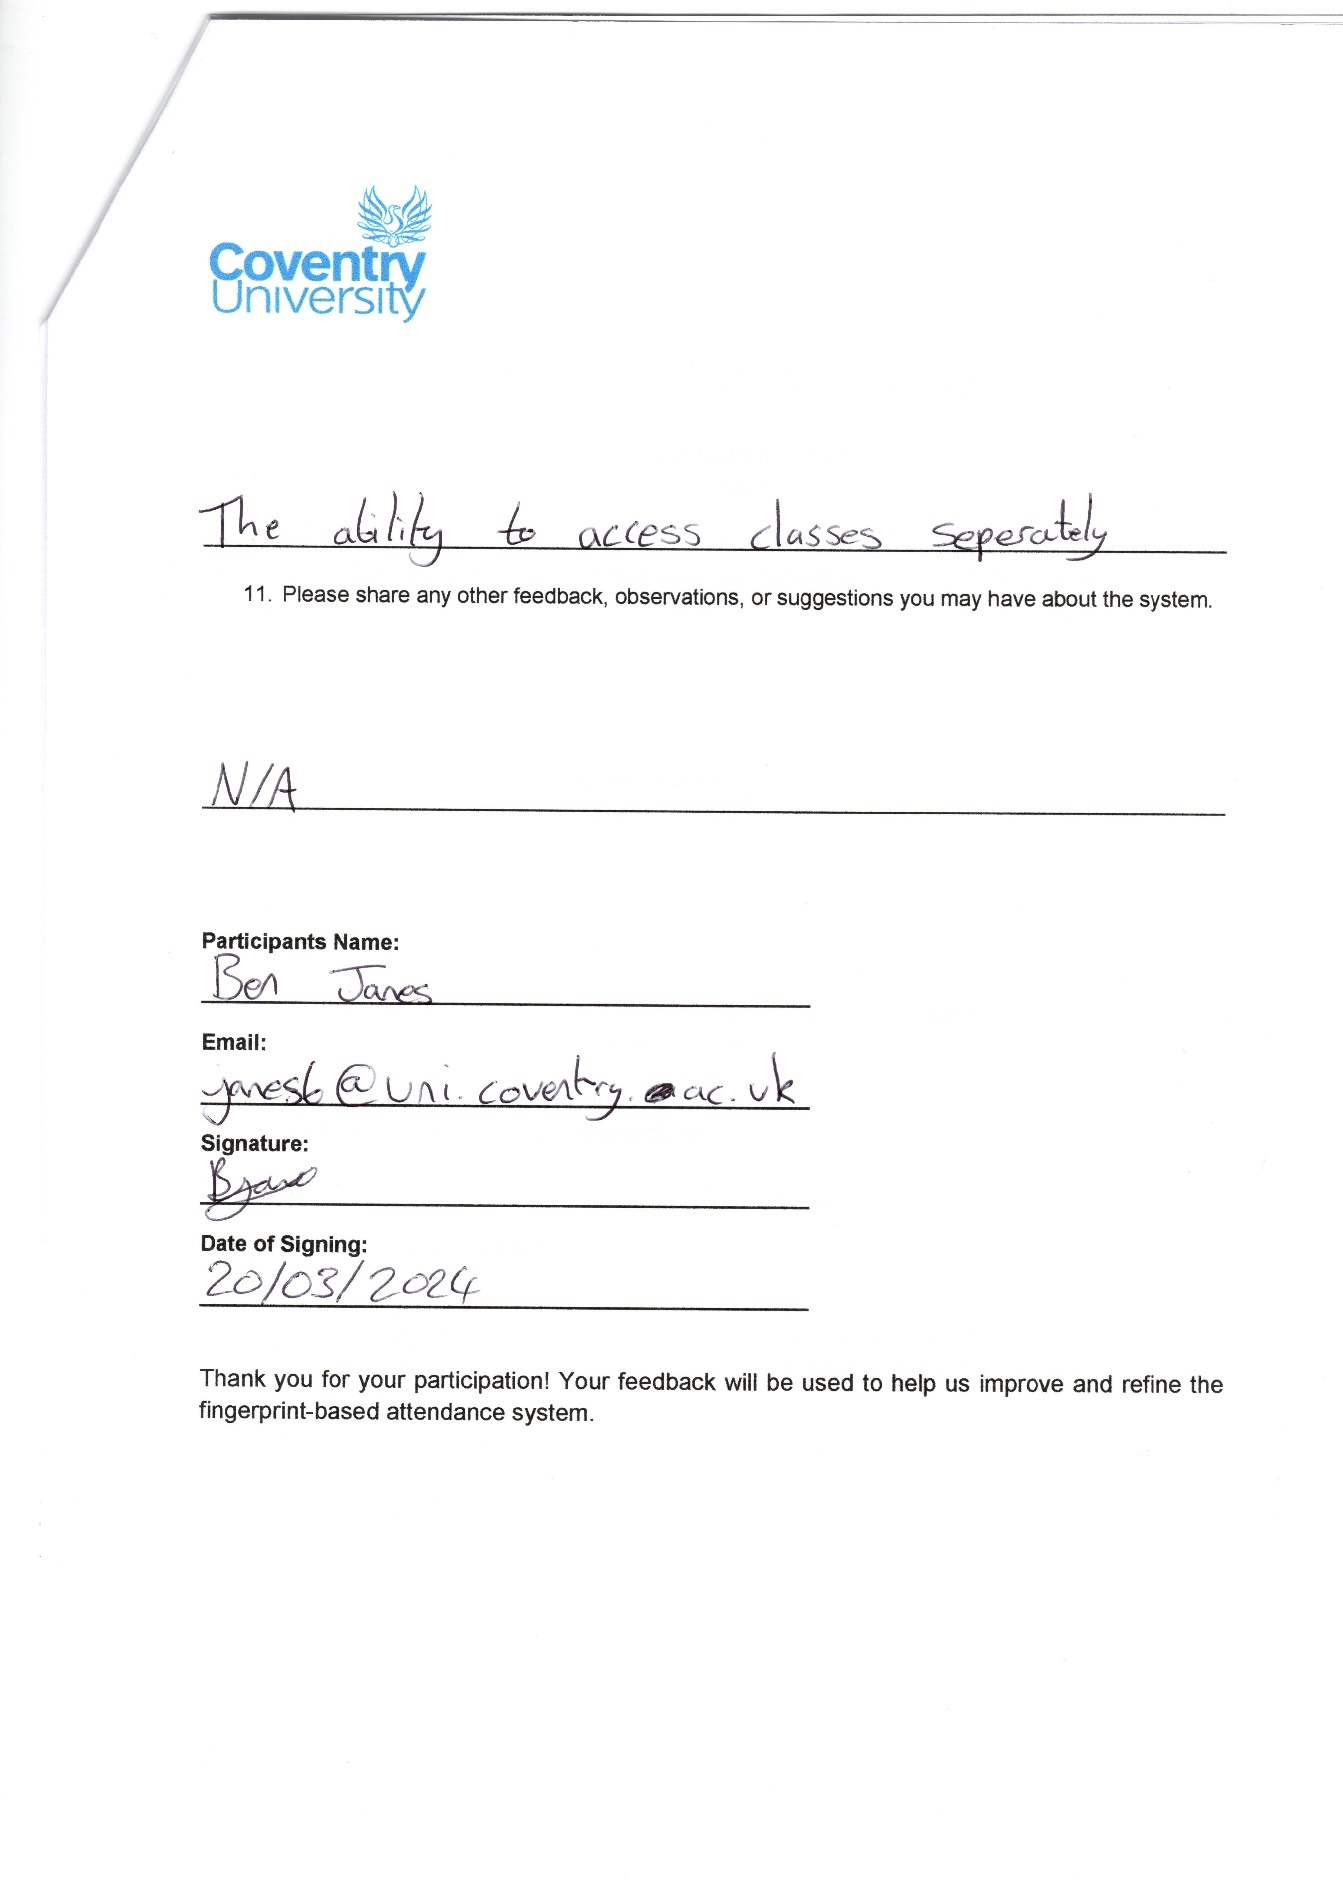 Coventry
University
The ability to access classes seperately
11. Please share any other feedback, observations, or suggestions you may have about the system.
N/A
Participants Name:
Ben Janes
Email:
janesb@uni.coventry.ac.uk
Signature:
BJanes
Date of Signing:
20/03/2024
Thank you for your participation! Your feedback will be used to help us improve and refine the
fingerprint-based attendance system.